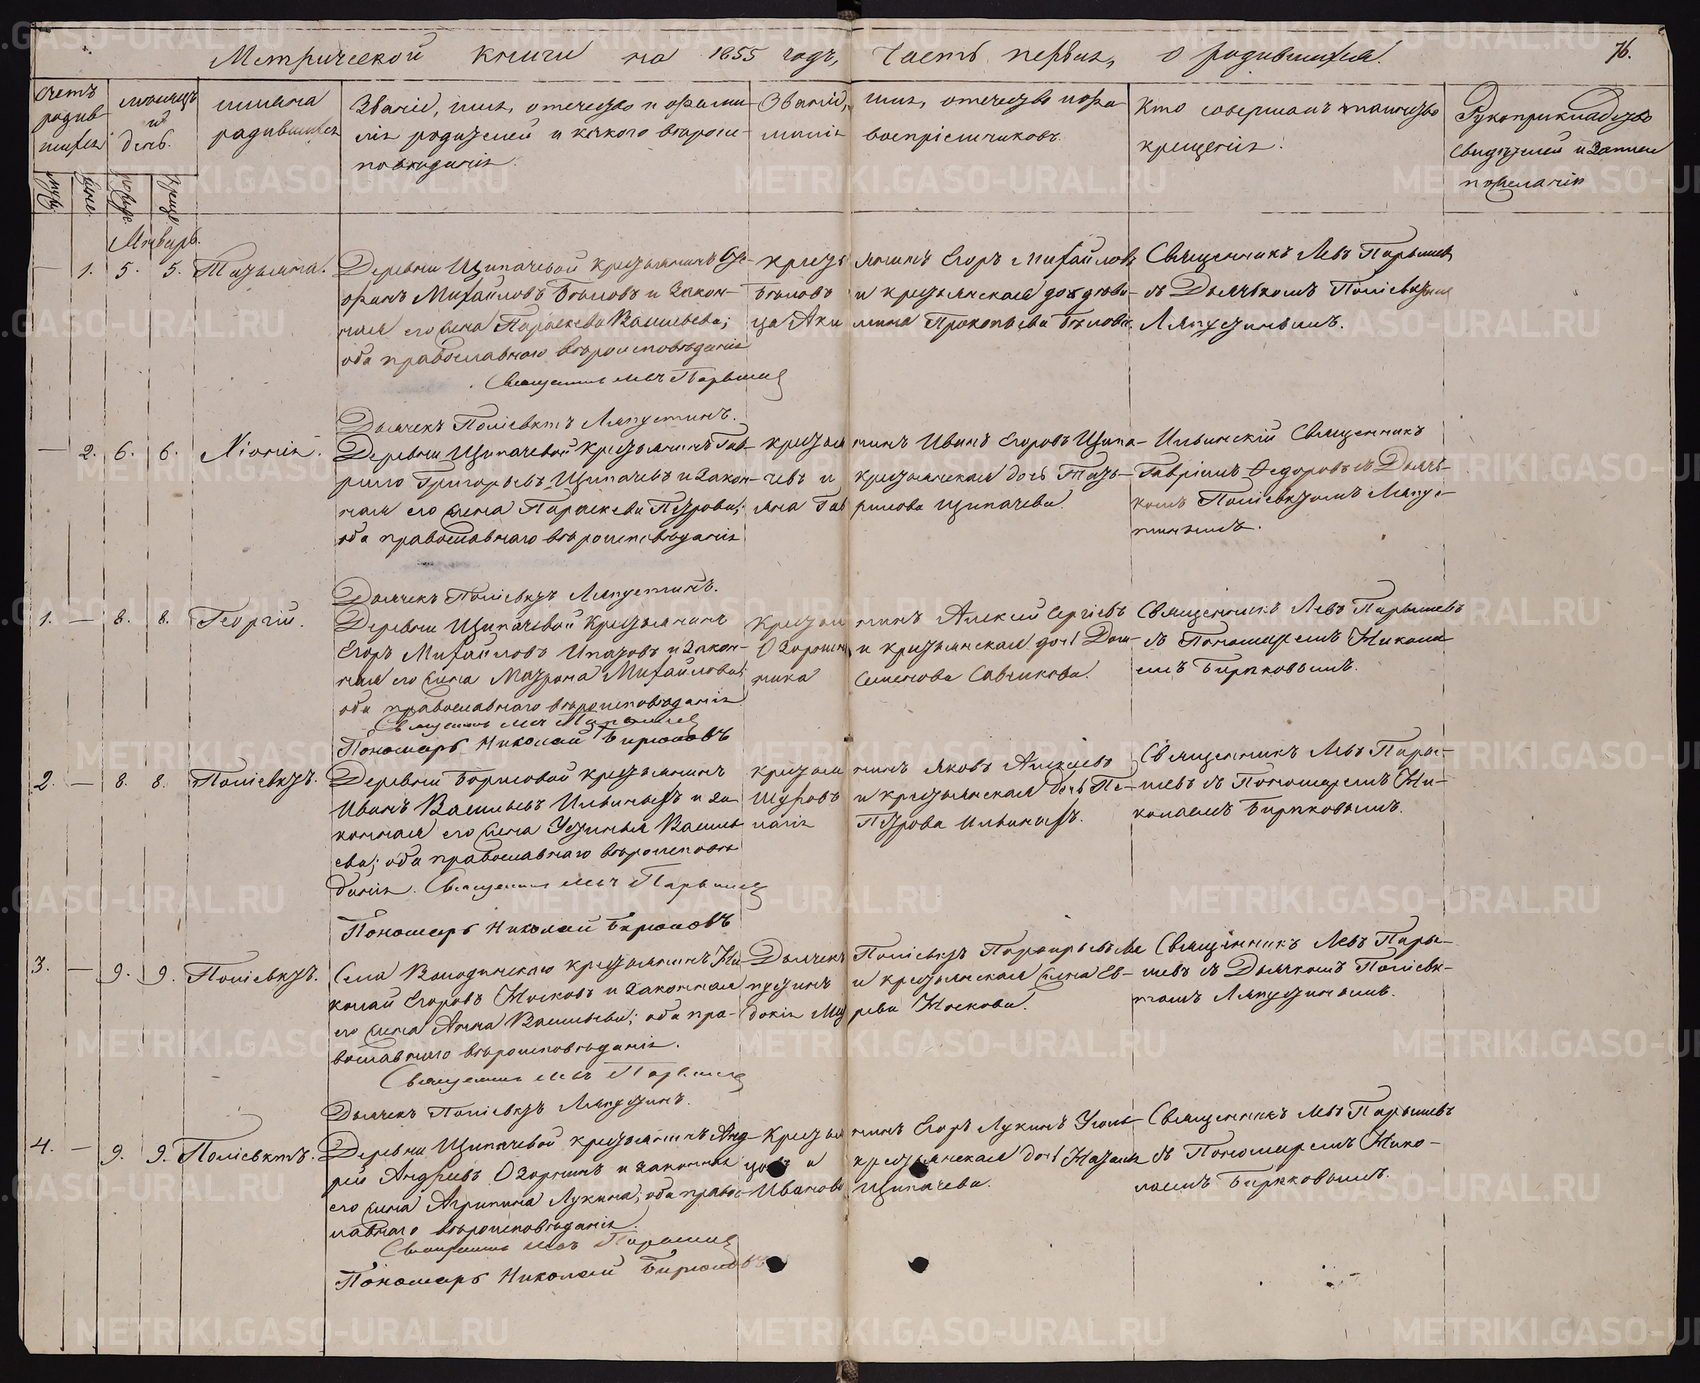 Метрической книги на 1855 годъ, часть первая, о родившихся.
76.
Счетъ родив шихся
мѣсяцъ и день.
имена родившихся
Званіе, имя, отечество и фами
лія родителей и какого вѣроис
повѣданія.
Званіе, имя, отечество и фа
милія воспріемниковъ.
Кто совершалъ таинство
крещенія.
Рукоприкладство
свидѣтелей и записи
по желанію
муж. жен. рожд. крещ.
Январь.
— 1. 5. 5. Татьяна.
Деревни Щипачевой крестьянинъ
Михайловъ Бѣловъ и закон-
ная его жена Параскева Васильева;
оба православнаго вѣроисповѣданія
Священникъ Левъ Парышев
Дьячекъ Поліевктъ Ляпустинъ.
крестьянинъ Егоръ Михайловъ
Бѣловъ и крестьянская дочь дѣви-
ца Акилина Прокопьева Бѣлова.
Священникъ Левъ Парышев
съ Дьячкомъ Поліевктомъ
Ляпустинымъ.
— 2. 6. 6. Ксенія.
Деревни Щипачевой крестьянинъ Гав-
рило Григорьевъ Щипачевъ и закон-
ная его жена Параскева Петрова;
оба православнаго вѣроисповѣданія
Дьячекъ Поліевктъ Ляпустинъ.
крестьянинъ Иванъ Егоровъ Щипа-
чевъ и крестьянская дочь Тать-
яна Гаврилова Щипачева.
Ильинскій Священникъ
Гавріилъ Ѳедоровъ съ Дьяч-
комъ Поліевктомъ Ляпус-
тинымъ.
1. — 8. 8. Георгій.
Деревни Щипачевой крестьянинъ
Егоръ Михайловъ Ипатовъ и закон-
ная его жена Матрона Михайлова;
оба православнаго вѣроисповѣданія
Священникъ Левъ Парышев
Пономарь Николай Бирюковъ
крестьянинъ Алексѣй Сергіевъ
и крестьянская дочь Дом-
ника Семенова Савчикова.
Священникъ Левъ Парышевъ
съ Пономаремъ Никола
емъ Бирюковымъ.
2. — 8. 8. Поліевктъ.
Деревни Борисовой крестьянинъ
Иванъ Васильевъ Ильиныхъ и за
конная его жена Устинья Василь
ева; оба православнаго вѣроисповѣ
данія. Священникъ Левъ Парышев
Пономарь Николай Бирюковъ
крестьянинъ Яковъ Алексіевъ
и крестьянская дочь Пе-
лагія Петрова Ильиныхъ.
Священникъ Левъ Пары-
шевъ съ Пономаремъ Ни-
колаемъ Бирюковымъ.
3. — 9. 9. Поліевктъ.
Села Володинскаго крестьянинъ Ни-
колай Егоровъ Носковъ и законная
его жена Анна Васильева; оба пра-
вославнаго вѣроисповѣданія.
Священникъ Левъ Парышев
Дьячекъ Поліевктъ Ляпустинъ.
Дьячекъ Поліевктъ Порфирьевъ Ля
пустинъ и крестьянская жена Ев-
докія Носкова.
Священникъ Левъ Пары-
шевъ съ Дьячкомъ Поліевк-
томъ Ляпустинымъ.
4. — 9. 9. Поліевктъ.
Деревни Щипачевой крестьянинъ Анд-
рей Андреевъ Озорнинъ и законная
его жена Агрипина Лукина; оба правос-
лавнаго вѣроисповѣданія.
Священникъ Левъ Парышев
Пономарь Николай Бирюковъ
крестьянинъ Егоръ Лукинъ
и крестьянская дочь Наталья
Иванова Щипачева.
Священникъ Левъ Парышевъ
съ Пономаремъ Нико-
лаемъ Бирюковымъ.
METRIKI.GASO-URAL.RU